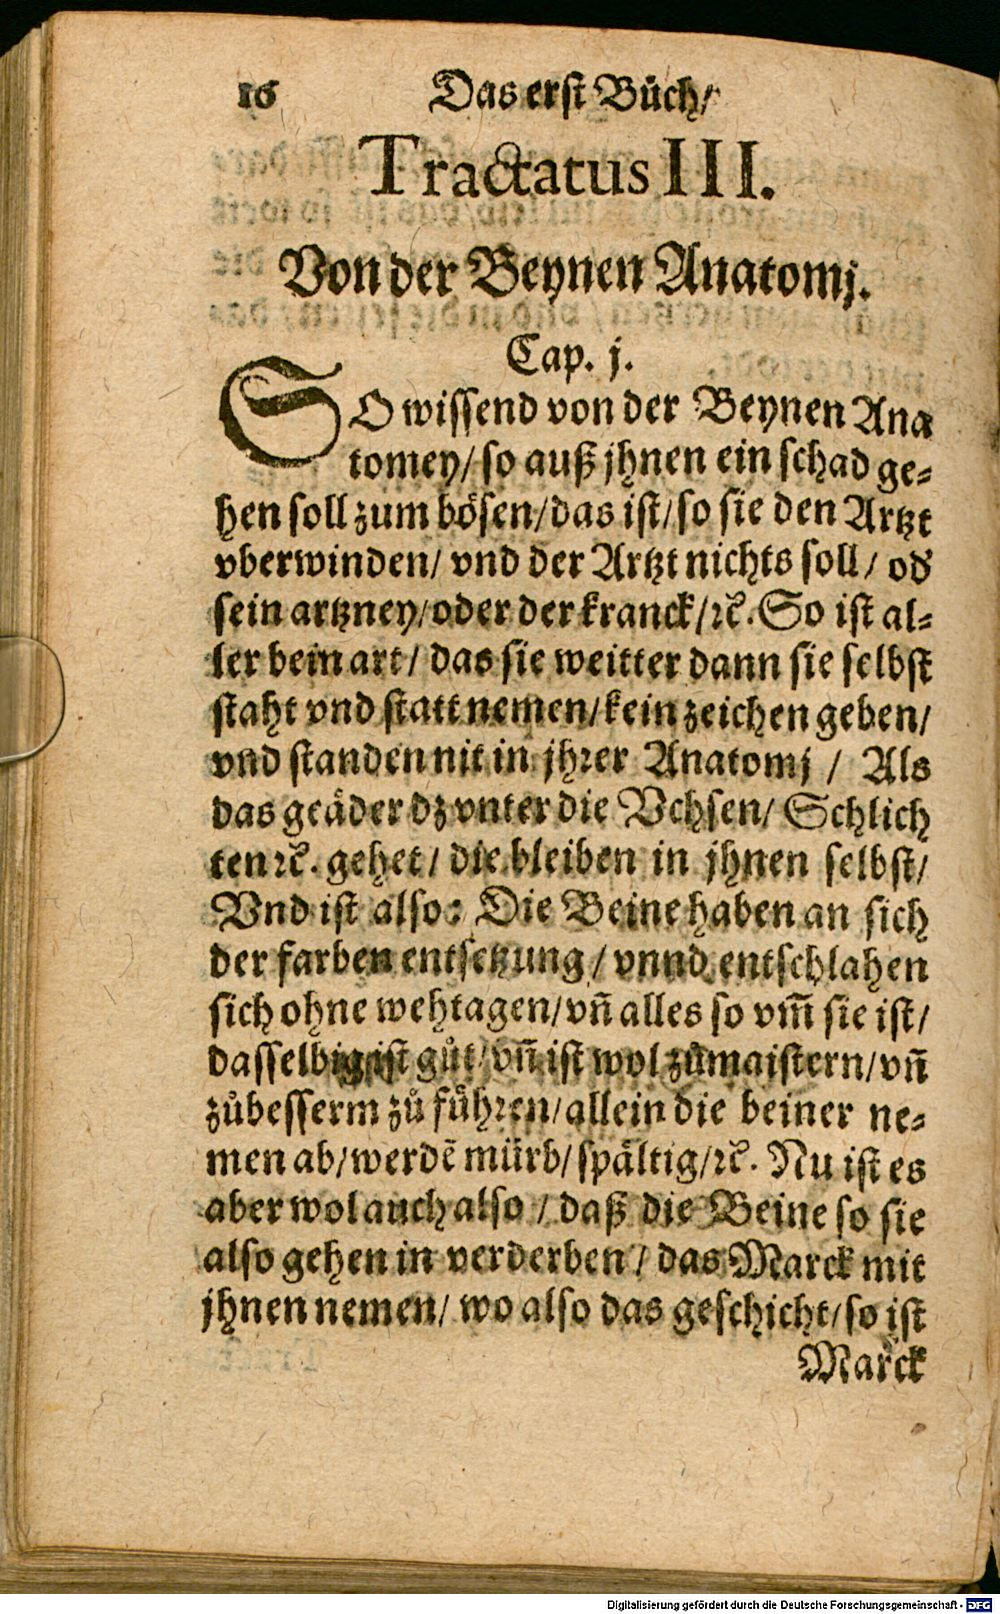 16 Das erst Bůch/
Tractatus III.
Von der Beynen Anatomj.
Cap. j.
SO wissend von der Beynen Ana
tomey/ so auß jhnen ein schad ge-
hen soll zum bösen/ das ist/ so sie den Artzt
vberwinden/ vnd der Artzt nichts soll/ od'
sein artzney/ oder der kranck/ ꝛc̃. So ist al-
ler bein art/ das sie weitter dann sie selbst
staht vnd statt nemen/ kein zeichen geben/
vnd standen nit in jhrer Anatomj / Als
das geäder dz vnter die Vchsen/ Schlich
ten ꝛc̃. gehet/ die bleiben in jhnen selbst/
Vnd ist also: Die Beine haben an sich
der farben entsetzung / vnnd entschlahen
sich ohne wehtagen/ vñ alles so vm̃ sie ist/
dasselbig ist gůt/ vñ ist wol zůmaistern/ vñ
zůbesserm zů führen/ allein die beiner ne-
men ab/ werdẽ mürb/ spältig/ ꝛc̃. Nu ist es
aber wol auch also / daß die Beine so sie
also gehen in verderben / das Marck mit
jhnen nemen/ wo also das geschicht/ so ist
Marck
Digitalisierung gefördert durch die Deutsche Forschungsgemeinschaft - DFG